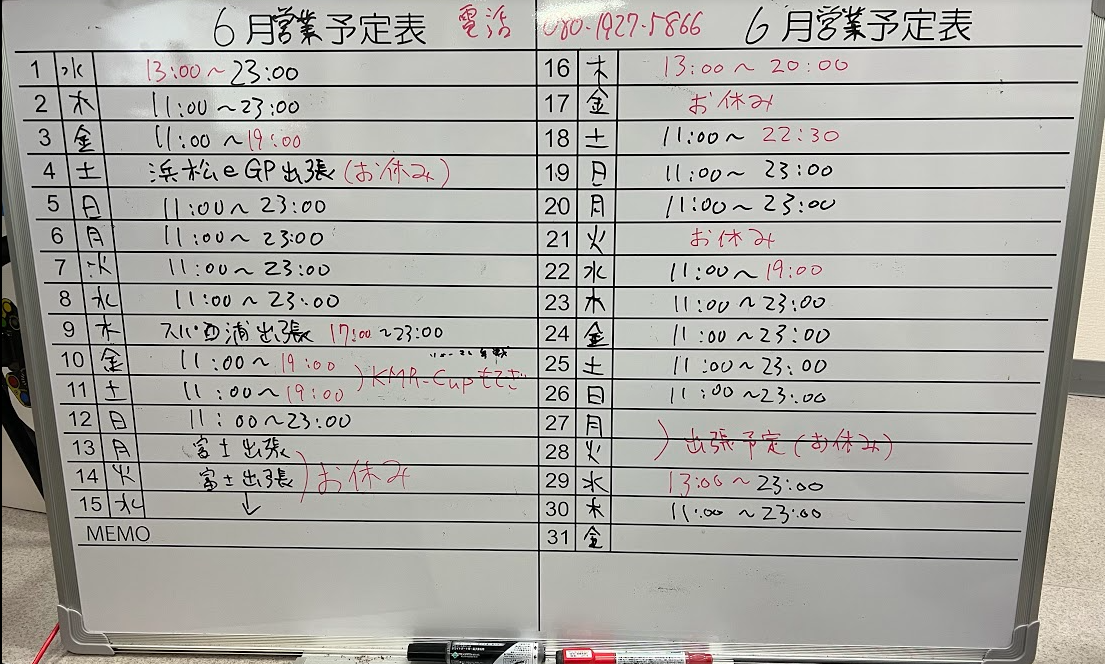 6月営業予定表 電話 080-1927-5866 6月営業予定表
1 水 13:00～23:00
2 木 11:00～23:00
3 金 11:00～19:00
4 土 浜松eGP出張(お休み)
5 日 11:00～23:00
6 月 11:00～23:00
7 火 11:00～23:00
8 水 11:00～23:00
9 木 スパ西浦出張 17:00～23:00
10 金 11:00～19:00
11 土 11:00～19:00
)KMR-Cupもてぎ
12 日 11:00～23:00
13 月 富士出張
14 火 富士出張
)お休み
15 水 ↓
MEMO
16 木 13:00～20:00
17 金 お休み
18 土 11:00～22:30
19 日 11:00～23:00
20 月 11:00～23:00
21 火 お休み
22 水 11:00～19:00
23 木 11:00～23:00
24 金 11:00～23:00
25 土 11:00～23:00
26 日 11:00～23:00
27 月
28 火
)出張予定(お休み)
29 水 13:00～23:00
30 木 11:00～23:00
31 金